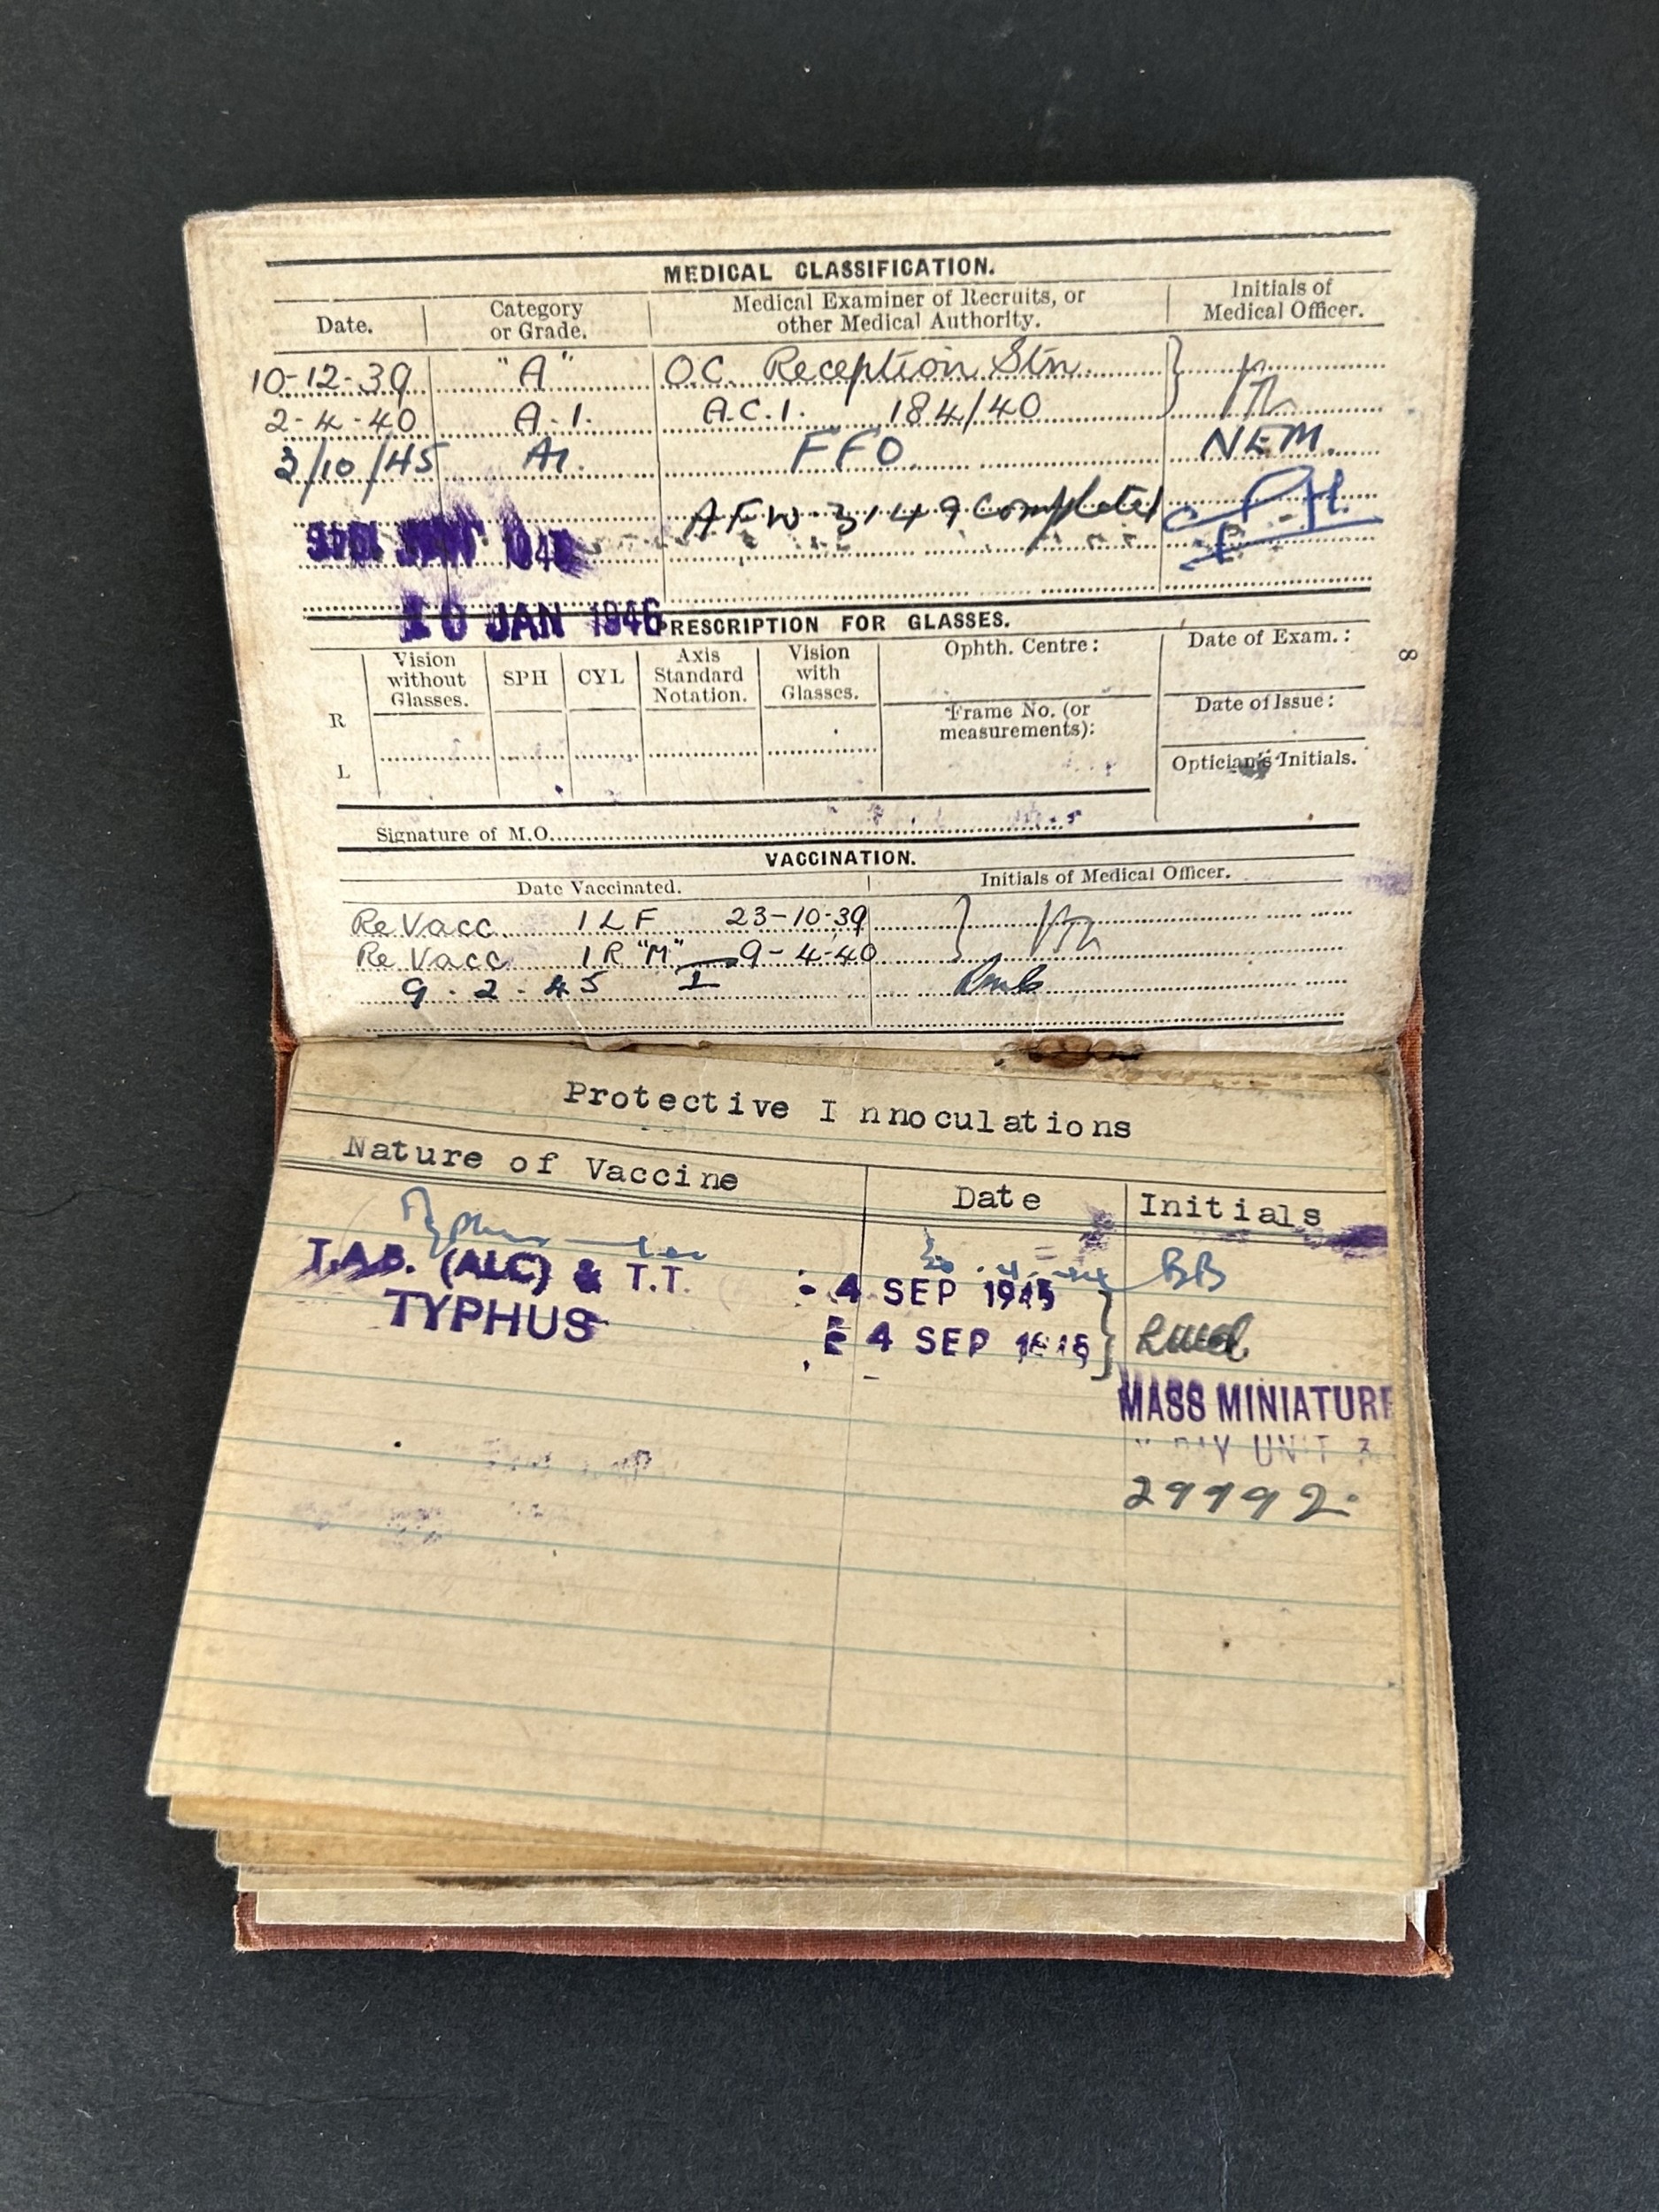 MEDICAL CLASSIFICATION.
Date. Category or Grade. Medical Examiner of Recruits, or other Medical Authority. Initials of Medical Officer.
10-12-39 "A" O.C. Reception Stn
2-4-40 A.1. A.C.I. 184/40
3/10/45 A1. FFO NEM.
AFW 3149 Completed
10 JAN 1946
PRESCRIPTION FOR GLASSES.
Vision without Glasses. SPH CYL Axis Standard Notation. Vision with Glasses. Ophth. Centre: Date of Exam.:
Frame No. (or measurements): Date of Issue:
R
L
Optician's Initials.
Signature of M.O.
8
VACCINATION.
Date Vaccinated. Initials of Medical Officer.
Re Vacc. 1 L F 23-10-39
Re Vacc 1 R "M" 9-4-40
9.2.45 I
Protective Innoculations
Nature of Vaccine Date Initials
Typhus BB
T.A.B. (ALC) & T.T. - 4 SEP 1945
TYPHUS 4 SEP
MASS MINIATURE
UNIT
29992.